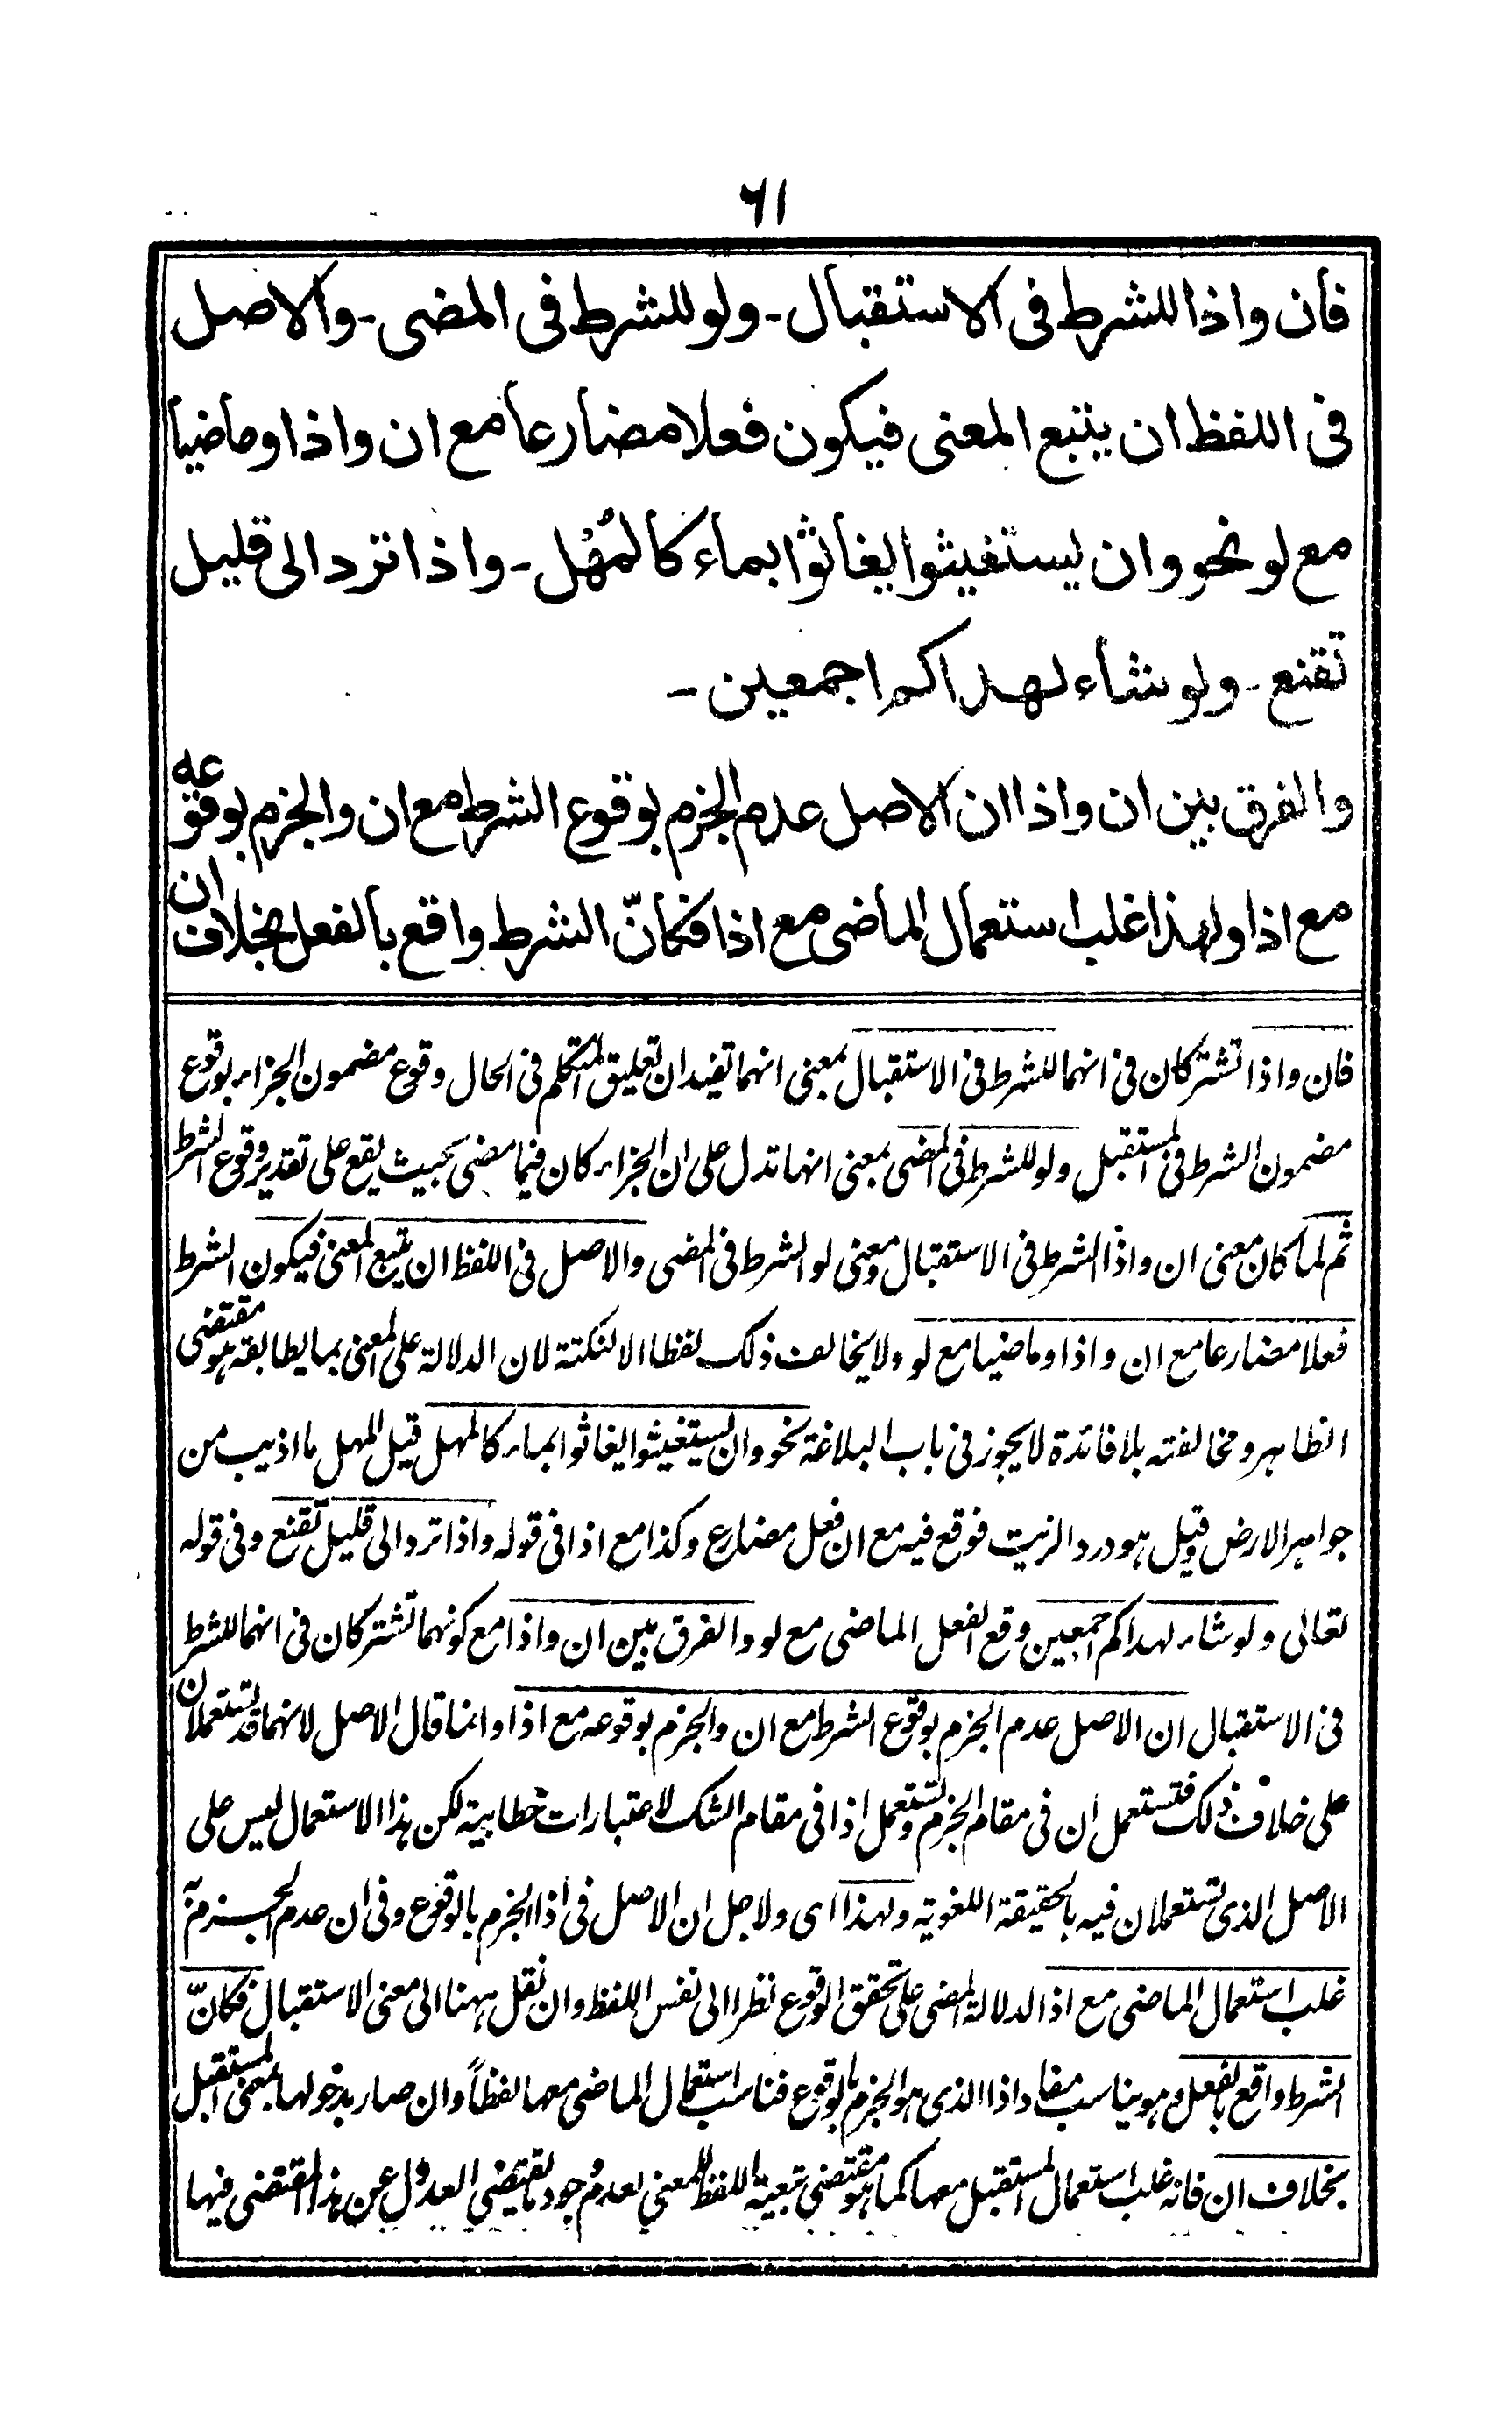 ٦١
فان واذا للشرط فى الاستقبال ـ ولو للشرط فى المضى ـ والاصل
فى اللفظ ان يتبع المعنى فيكون فعلا مضارعا مع ان واذا وماضيا
مع لو نحو وان يستغيثوا يغاثوا بماء كالمُهْل ـ واذا ترد الى قليل
تقنع ـ ولو شاء لهداكم اجمعين ـ
والفرق بين ان واذا ان الاصل عدم الجزم بوقوع الشرط مع ان والجزم بوقوعه
مع اذا ولهذا غلب استعمال الماضى مع اذا فكأنّ الشرط واقع بالفعل بخلاف ان
فان واذا تشتركان فى انهما للشرط فى الاستقبال بمعنى انهما تفيدان تعليق المتكلم فى الحال وقوع مضمون الجزاء بوقوع
مضمون الشرط فى المستقبل ولو للشرط فى المضى بمعنى انها تدل على ان الجزاء كان فيما مضى بحيث يقع على تقدير وقوع الشرط
ثم لما كان معنى ان واذا الشرط فى الاستقبال ومعنى لو الشرط فى المضى والاصل فى اللفظ ان يتبع المعنى فيكون الشرط
فعلا مضارعا مع ان واذا وماضيا مع لو ولا يخالف ذلك لفظا الا لنكتة لان الدلالة على المعنى بما يطابقه هو مقتضى
الظاهر ومخالفته بلا فائدة لا يجوز فى باب البلاغة نحو وان يستغيثوا يغاثوا بماء كالمهل قيل المهل ما اذيب من
جواهر الارض وقيل هو درد الزيت فوقع فيه مع ان فعل مضارع وكذا مع اذا فى قوله واذا ترد الى قليل تقنع وفى قوله
تعالى ولو شاء لهداكم اجمعين وقع الفعل الماضى مع لو والفرق بين ان واذا مع كونهما تشتركان فى انهما للشرط
فى الاستقبال ان الاصل عدم الجزم بوقوع الشرط مع ان والجزم بوقوعه مع اذا وانما قال الاصل لانهما قد تستعملان
على خلاف ذلك فتستعمل ان فى مقام الجزم وتستعمل اذا فى مقام الشك لاعتبارات خطابية لكن هذا الاستعمال ليس على
الاصل الذى تستعملان فيه بالحقيقة اللغوية ولهذا اى ولاجل ان الاصل فى اذا الجزم بالوقوع وفى ان عدم الجزم به
غلب استعمال الماضى مع اذا لدلالة المضى على تحقق الوقوع نظرا الى نفس اللفظ وان نقل ههنا الى معنى الاستقبال فكانّ
الشرط واقع بالفعل وهو يناسب مفاد اذا الذى هو الجزم بالوقوع فناسب استعمال الماضى معها لفظاً وان صار بدخولها بمعنى المستقبل
بخلاف ان فانه غلب استعمال المستقبل معها كما هو مقتضى تبعية اللفظ للمعنى لعدم وجود ما يقتضى العدول عن هذا المقتضى فيها